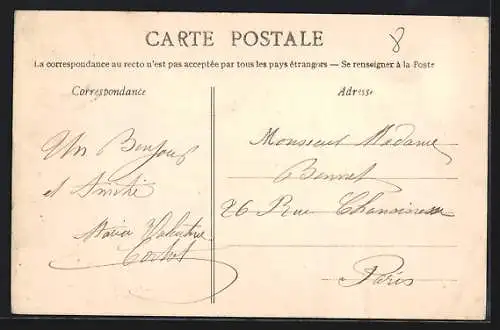 CARTE POSTALE
8
La correspondance au recto n'est pas acceptée par tous les pays étrangers — Se renseigner à la Poste
Correspondance
Adresse
Un Bonjour
et Amitié
Maria Valentine
Monsieur Madame
Bonnet
26 Rue Chanoinesse
Paris